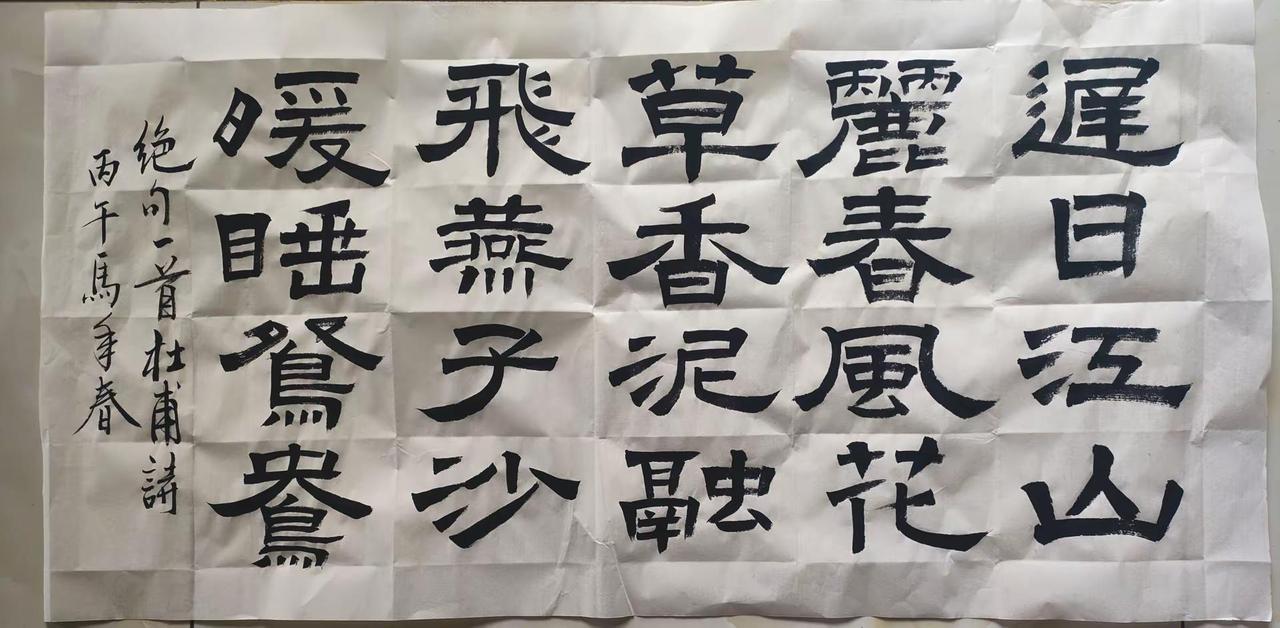 遲日江山
麗春風花
草香泥融
飛燕子沙
暖睡鴛鴦
絶句一首杜甫詩
丙午馬年春